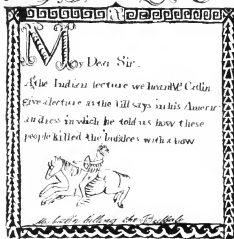 My Dear Sir.
At the Indian lecture we heard Mr Catlin
give a lecture as the bill says in his Americ-
an dress in which he told us how these
people killed the buffaloes with a bow
Mr Catlin killing the Buffalo